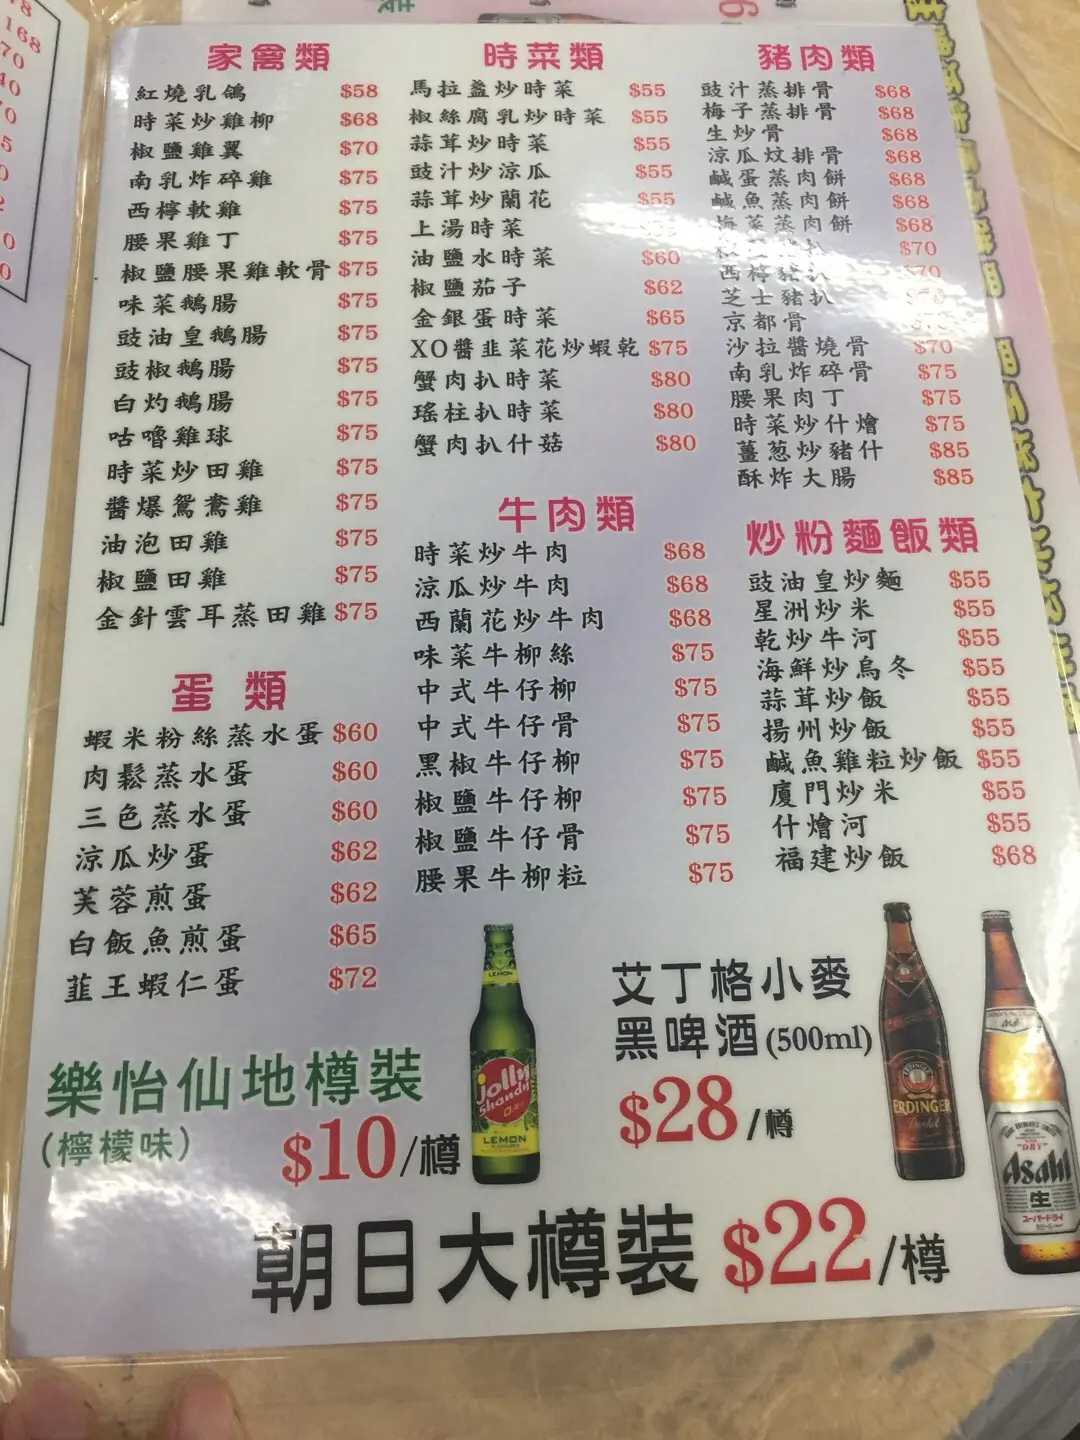 家禽類
紅燒乳鴿 $58
時菜炒雞柳 $68
椒鹽雞翼 $70
南乳炸碎雞 $75
西檸軟雞 $75
腰果雞丁 $75
椒鹽腰果雞軟骨 $75
味菜鵝腸 $75
豉油皇鵝腸 $75
豉椒鵝腸 $75
白灼鵝腸 $75
咕嚕雞球 $75
時菜炒田雞 $75
醬爆鴛鴦雞 $75
油泡田雞 $75
椒鹽田雞 $75
金針雲耳蒸田雞 $75
蛋類
蝦米粉絲蒸水蛋 $60
肉鬆蒸水蛋 $60
三色蒸水蛋 $60
涼瓜炒蛋 $62
芙蓉煎蛋 $62
白飯魚煎蛋 $65
韮王蝦仁蛋 $72
時菜類
馬拉盞炒時菜 $55
椒絲腐乳炒時菜 $55
蒜茸炒時菜 $55
豉汁炒涼瓜 $55
蒜茸炒蘭花 $55
上湯時菜
油鹽水時菜 $60
椒鹽茄子 $62
金銀蛋時菜 $65
XO醬韭菜花炒蝦乾 $75
蟹肉扒時菜 $80
瑤柱扒時菜 $80
蟹肉扒什菇 $80
牛肉類
時菜炒牛肉 $68
涼瓜炒牛肉 $68
西蘭花炒牛肉 $68
味菜牛柳絲 $75
中式牛仔柳 $75
中式牛仔骨 $75
黑椒牛仔柳 $75
椒鹽牛仔柳 $75
椒鹽牛仔骨 $75
腰果牛柳粒 $75
豬肉類
豉汁蒸排骨 $68
梅子蒸排骨 $68
生炒骨 $68
涼瓜炆排骨 $68
鹹蛋蒸肉餅 $68
鹹魚蒸肉餅 $68
梅菜蒸肉餅 $68
$70
西檸豬扒 $70
芝士豬扒
京都骨
沙拉醬燒骨 $70
南乳炸碎骨 $75
腰果肉丁 $75
時菜炒什燴 $75
薑葱炒豬什 $85
酥炸大腸 $85
炒粉麵飯類
豉油皇炒麵 $55
星洲炒米 $55
乾炒牛河 $55
海鮮炒烏冬 $55
蒜茸炒飯 $55
揚州炒飯 $55
鹹魚雞粒炒飯 $55
廈門炒米 $55
什燴河 $55
福建炒飯 $68
樂怡仙地樽裝
(檸檬味)
$10/樽
LEMON
Jolly
Shandy
LEMON
艾丁格小麥
黑啤酒(500ml)
$28/樽
ERDINGER
Dunkel
朝日大樽裝 $22/樽
"DRY"
Asahi
生
スーパードライ